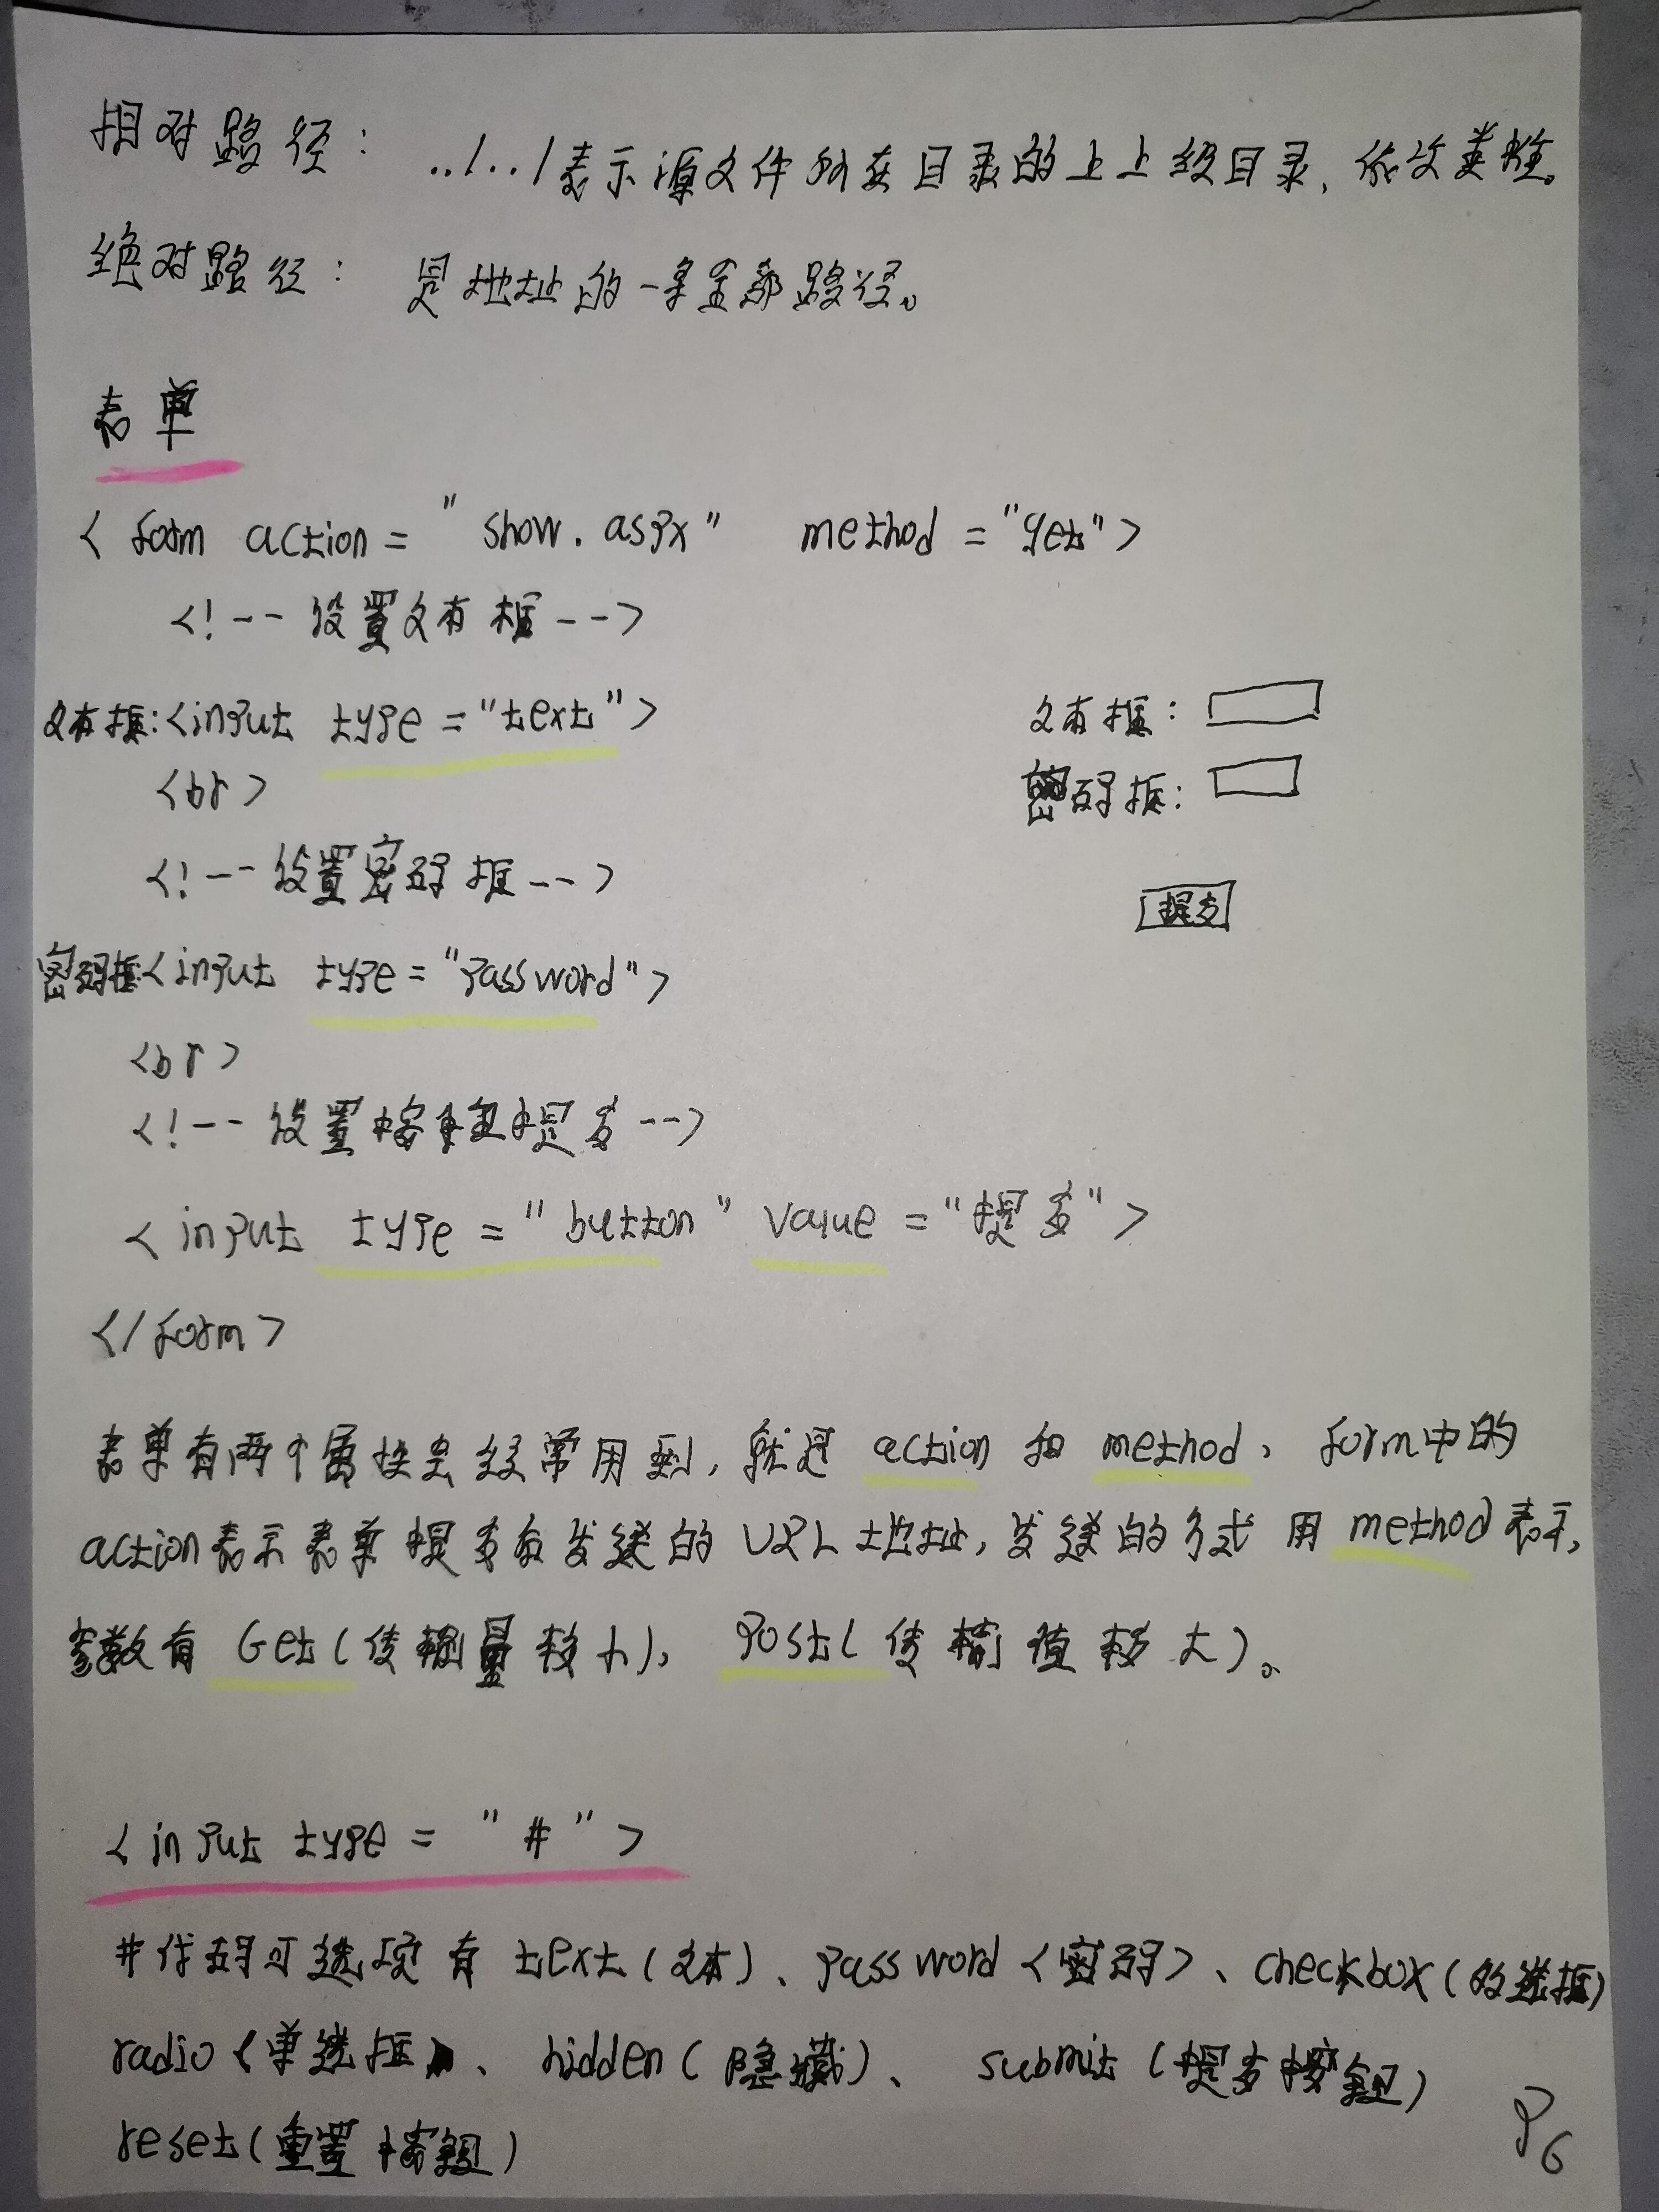 相对路径： ../../表示源文件所在目录的上上级目录，依次类推。
绝对路径： 是地址的一条全部路径。
表单
<form action = "show.aspx" method = "get">
<!-- 设置文本框 -->
文本框:<input type = "text">
<br>
<!-- 设置密码框 -->
密码框<input type = "password">
<br>
<!-- 设置按钮提交 -->
<input type = "button" value = "提交">
</form>
文本框：
密码框：
提交
表单有两个属性会经常用到，就是 action 和 method，form中的
action表示表单提交后发送的URL地址，发送的方式用method表示，
参数有 Get(传输量较小)，Post(传输值较大)。
<input type = "#">
#代码可选项有 text(文本)、password<密码>、checkbox(多选框)
radio(单选框)、hidden(隐藏)、submit(提交按钮)
reset(重置按钮)
P6